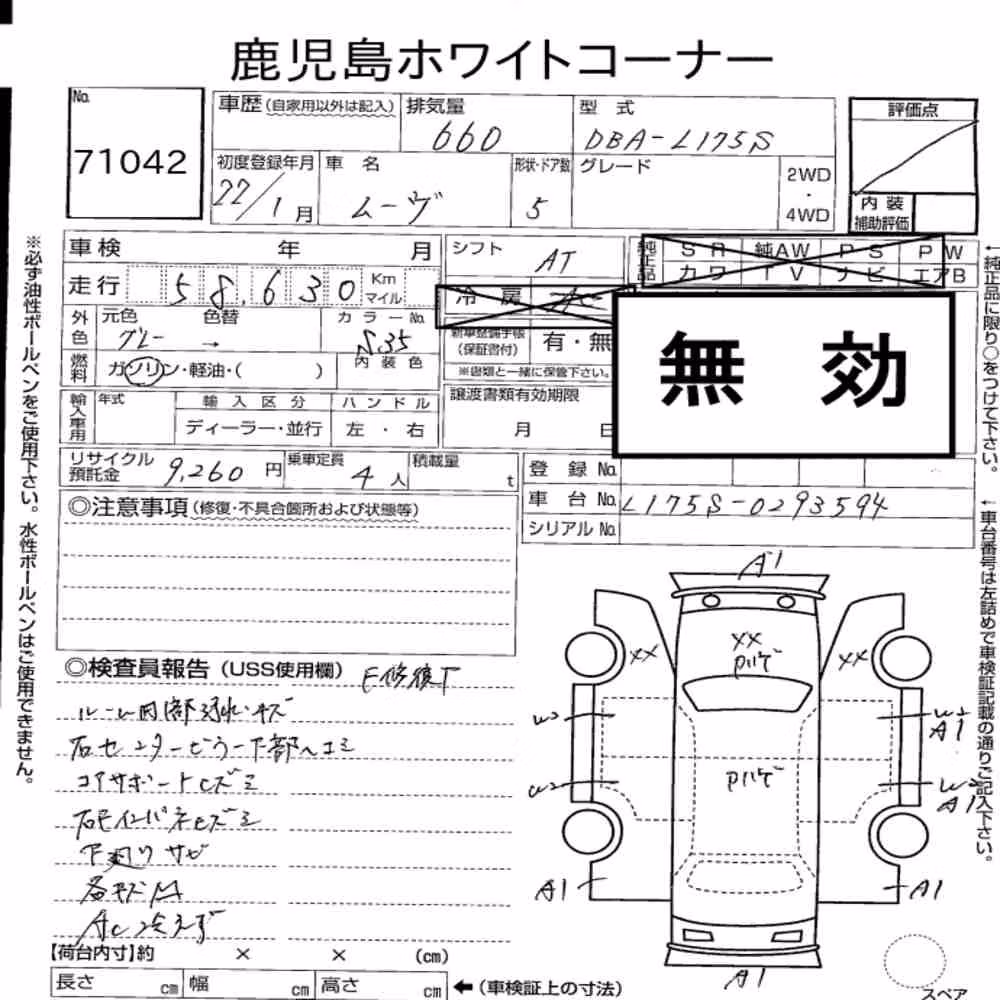 鹿児島ホワイトコーナー
No.
71042
車歴(自家用以外は記入)
排気量
660
型 式
DBA-L175S
評価点
初度登録年月
22/1月
車 名
ムーヴ
形状・ドア数
5
グレード
2WD
・
4WD
内 装
補助評価
車 検 年 月
シフト AT
純正品
S R 純AW P S P W
カワ T V ナビ エアB
走行 58,630 Km マイル
冷 房
外色
元色 色替
グレー →
カラーNo.
S35
新車整備手帳
(保証書付)
有・無
※書類と一緒に保管下さい。
無 効
燃料
ガソリン・軽油・( )
内装色
輸入車用
年式
輸入区分
ハンドル
ディーラー・並行
左・右
譲渡書類有効期限
月 日
リサイクル
預託金
9,260円
乗車定員
4人
積載量
t
登 録 No.
車 台 No. L175S-0293594
シリアル No.
◎注意事項(修復・不具合箇所および状態等)
◎検査員報告(USS使用欄)
ルーム内部汚れキズ
右センターピラー下部ヘコミ
コアサポートヒズミ
下廻りサビ
【荷台内寸】約 × × (cm)
長さ cm 幅 cm 高さ cm
←(車検証上の寸法)
A1
XX
XX
Pハゲ
XX
W2
A1
Pハゲ
W2
W2
A1
A1
A1
A1
スペア
※必ず油性ボールペンをご使用下さい。水性ボールペンはご使用できません。
←純正品に限り○をつけて下さい。
←車台番号は左詰めで車検証記載の通りご記入下さい。